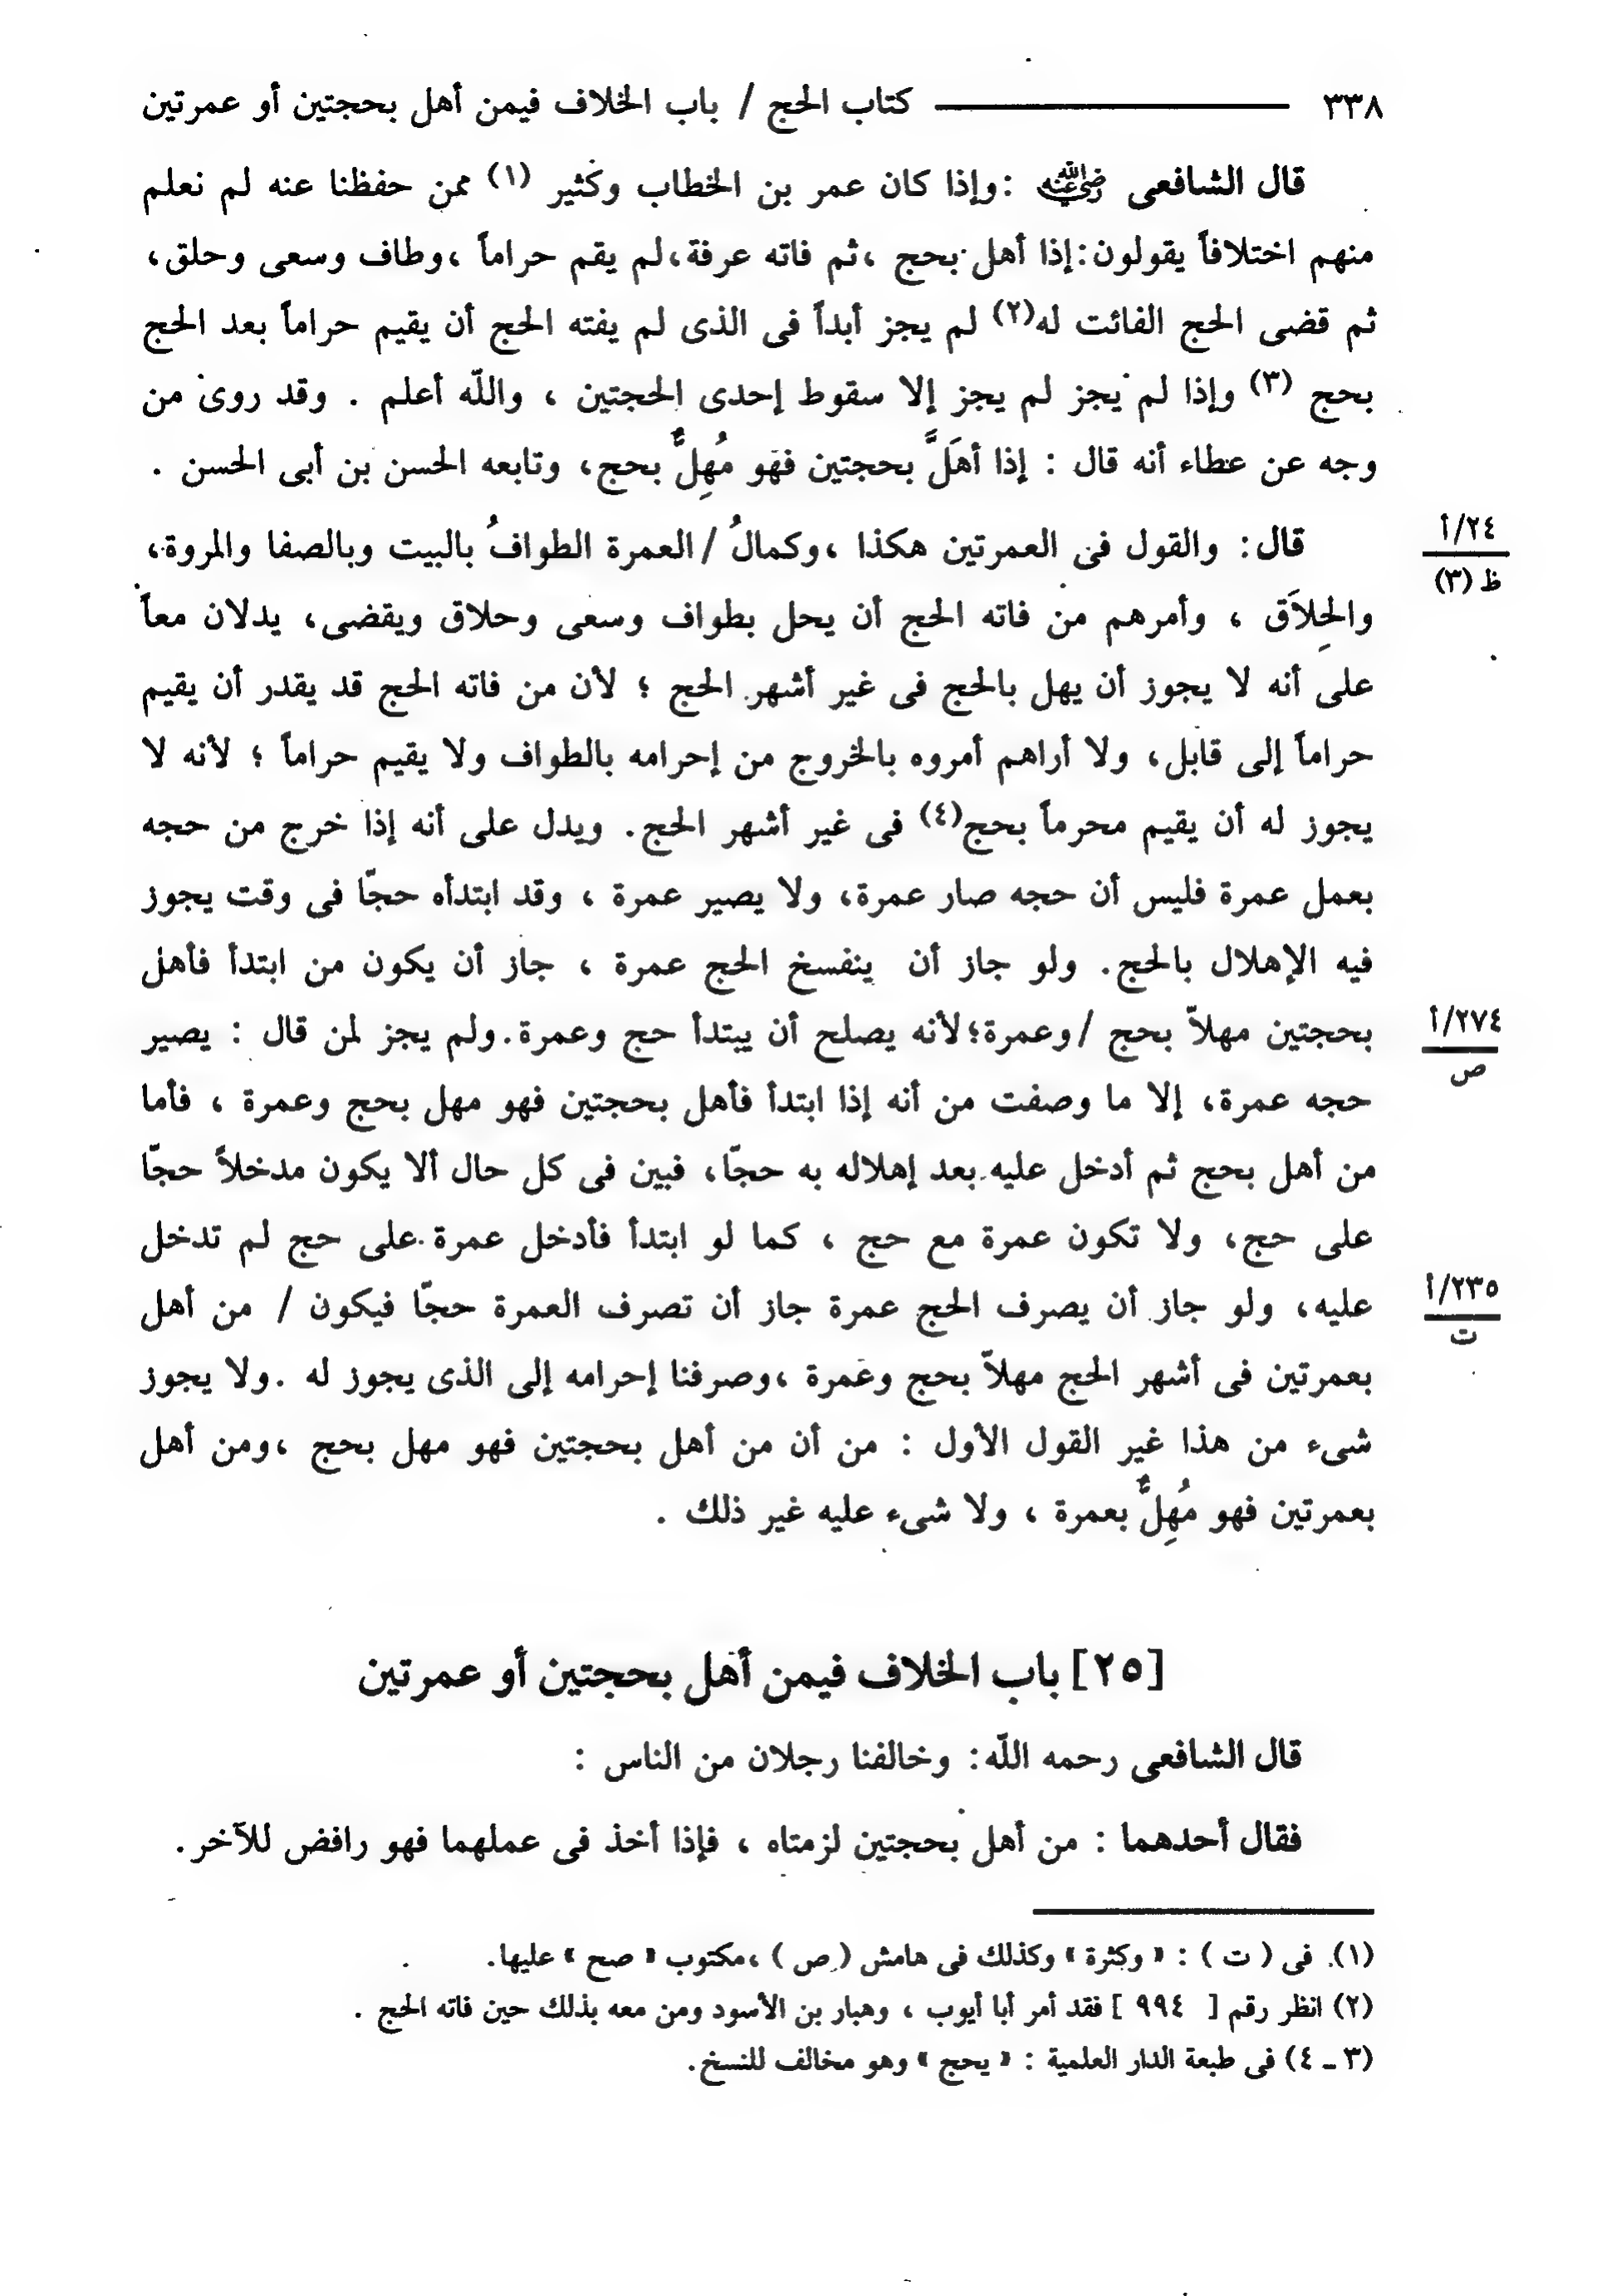 ٣٣٨ كتاب الحج / باب الخلاف فيمن أهل بحجتين أو عمرتين
قال الشافعى رضي الله عنه :وإذا كان عمر بن الخطاب وكثير (١) ممن حفظنا عنه لم نعلم
منهم اختلافاً يقولون:إذا أهل بحج ،ثم فاته عرفة،لم يقم حراماً ،وطاف وسعى وحلق،
ثم قضى الحج الفائت له(٢) لم يجز أبداً فى الذى لم يفته الحج أن يقيم حراماً بعد الحج
بحج (٣) وإذا لم يجز لم يجز إلا سقوط إحدى الحجتين ، واللّه أعلم . وقد روى من
وجه عن عطاء أنه قال : إذا أهَلَّ بحجتين فهو مُهِلٌّ بحج، وتابعه الحسن بن أبى الحسن .
قال: والقول فى العمرتين هكذا ،وكمالُ /العمرة الطوافُ بالبيت وبالصفا والمروة،
١/٢٤
ظ (٣)
والحِلاَق ، وأمرهم من فاته الحج أن يحل بطواف وسعى وحلاق ويقضى، يدلان معاً
على أنه لا يجوز أن يهل بالحج فى غير أشهر الحج ؛ لأن من فاته الحج قد يقدر أن يقيم
حراماً إلى قابل، ولا أراهم أمروه بالخروج من إحرامه بالطواف ولا يقيم حراماً ؛ لأنه لا
يجوز له أن يقيم محرماً بحج(٤) فى غير أشهر الحج. ويدل على أنه إذا خرج من حجه
بعمل عمرة فليس أن حجه صار عمرة، ولا يصير عمرة ، وقد ابتدأه حجّا فى وقت يجوز
فيه الإهلال بالحج. ولو جاز أن ينفسخ الحج عمرة ، جاز أن يكون من ابتدأ فأهل
بحجتين مهلاّ بحج /وعمرة؛لأنه يصلح أن يبتدأ حج وعمرة.ولم يجز لمن قال : يصير
٢٧٤/أ
ص
حجه عمرة، إلا ما وصفت من أنه إذا ابتدأ فأهل بحجتين فهو مهل بحج وعمرة ، فأما
من أهل بحج ثم أدخل عليه بعد إهلاله به حجّا، فبين فى كل حال ألا يكون مدخلاً حجّا
على حج، ولا تكون عمرة مع حج ، كما لو ابتدأ فأدخل عمرة على حج لم تدخل
عليه، ولو جاز أن يصرف الحج عمرة جاز أن تصرف العمرة حجّا فيكون / من أهل
٢٣٥/أ
ت
بعمرتين فى أشهر الحج مهلاّ بحج وعمرة ،وصرفنا إحرامه إلى الذى يجوز له .ولا يجوز
شىء من هذا غير القول الأول : من أن من أهل بحجتين فهو مهل بحج ،ومن أهل
بعمرتين فهو مُهِلٌّ بعمرة ، ولا شىء عليه غير ذلك .
[٢٥] باب الخلاف فيمن أهل بحجتين أو عمرتين
قال الشافعى رحمه اللّه: وخالفنا رجلان من الناس :
فقال أحدهما : من أهل بحجتين لزمتاه ، فإذا أخذ فى عملهما فهو رافض للآخر.
(١) فى ( ت ) : « وكثرة » وكذلك فى هامش ( ص ) ،مكتوب « صح » عليها.
(٢) انظر رقم [ ٩٩٤ ] فقد أمر أبا أيوب ، وهبار بن الأسود ومن معه بذلك حين فاته الحج .
(٣ ـ ٤) فى طبعة الدار العلمية : « يحج » وهو مخالف للنسخ.